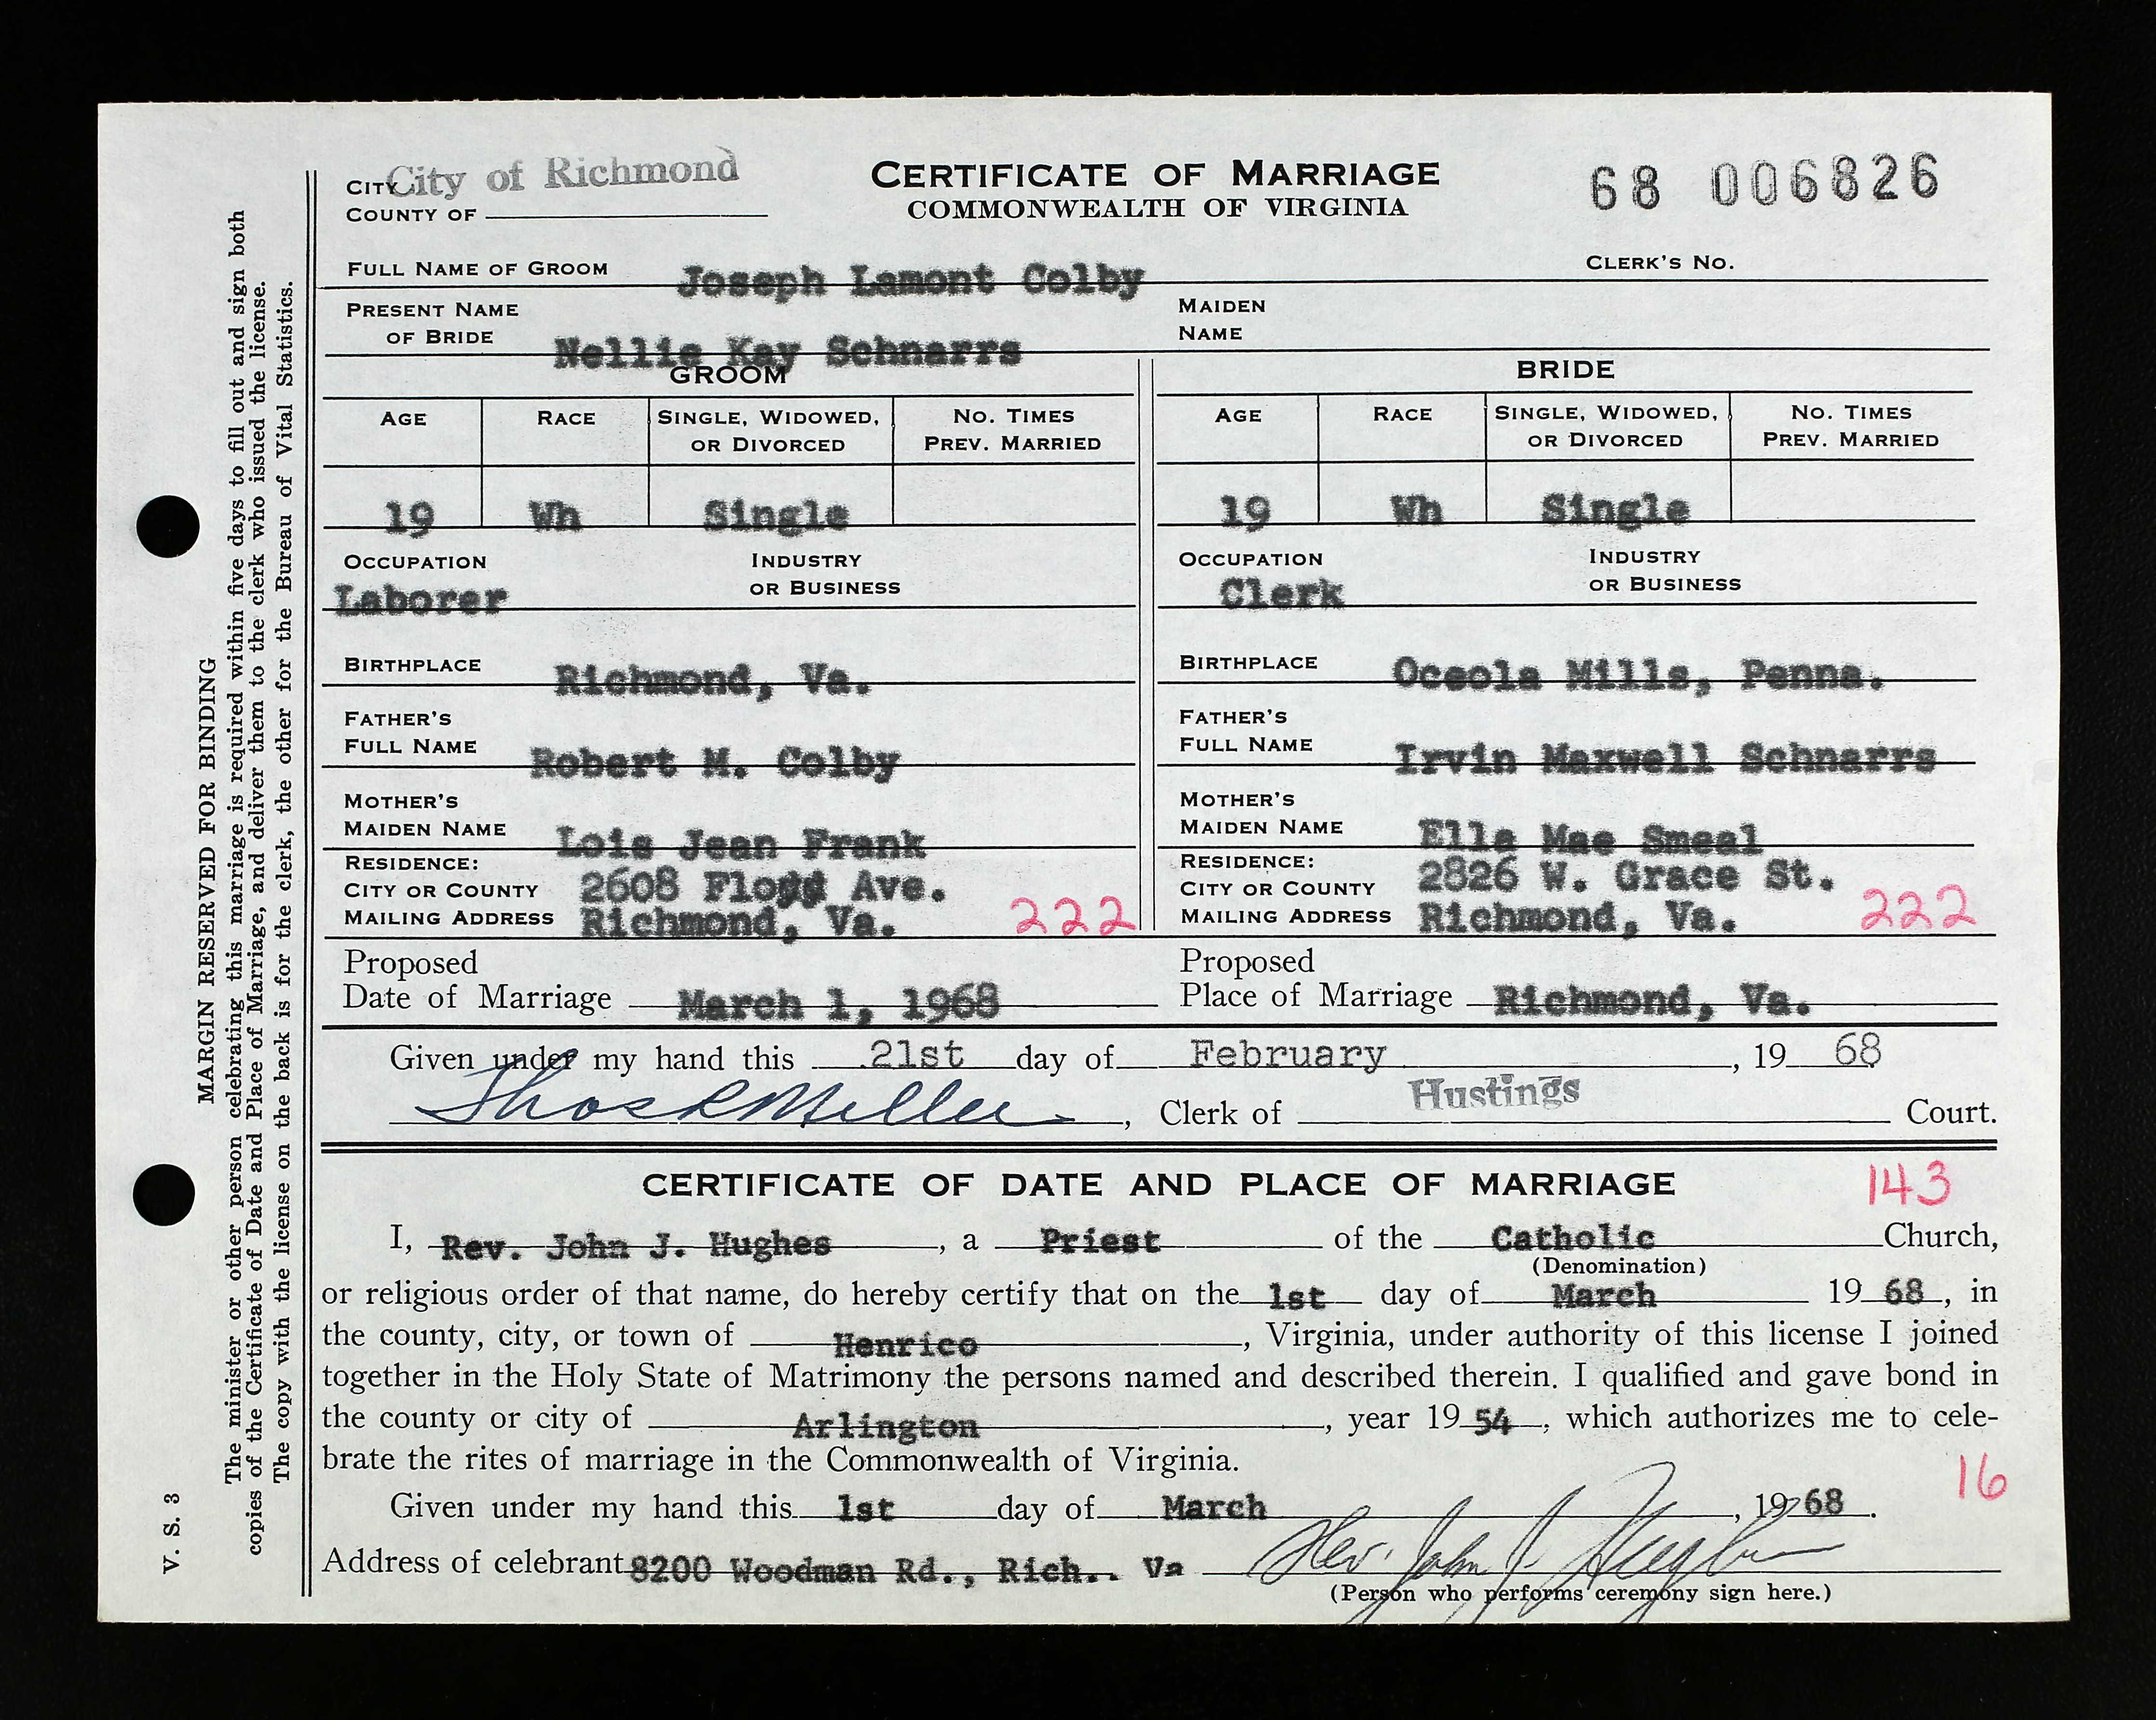 MARGIN RESERVED FOR BINDING
The minister or other person celebrating this marriage is required within five days to fill out and sign both
copies of the Certificate of Date and Place of Marriage, and deliver them to the clerk who issued the license.
The copy with the license on the back is for the clerk, the other for the Bureau of Vital Statistics.
V. S. 3
CITY City of Richmond
COUNTY OF
CERTIFICATE OF MARRIAGE
COMMONWEALTH OF VIRGINIA
68 006826
FULL NAME OF GROOM Joseph Lamont Colby CLERK'S NO.
PRESENT NAME OF BRIDE Nellie Kay Schnarrs MAIDEN NAME
GROOM
AGE RACE SINGLE, WIDOWED, OR DIVORCED NO. TIMES PREV. MARRIED
19 Wh Single
OCCUPATION Laborer INDUSTRY OR BUSINESS
BIRTHPLACE Richmond, Va.
FATHER'S FULL NAME Robert M. Colby
MOTHER'S MAIDEN NAME Lois Jean Frank
RESIDENCE:
CITY OR COUNTY 2608 Floyd Ave.
MAILING ADDRESS Richmond, Va. 222
BRIDE
AGE RACE SINGLE, WIDOWED, OR DIVORCED NO. TIMES PREV. MARRIED
19 Wh Single
OCCUPATION Clerk INDUSTRY OR BUSINESS
BIRTHPLACE Oceola Mills, Penna.
FATHER'S FULL NAME Irvin Maxwell Schnarrs
MOTHER'S MAIDEN NAME Ella Mae Smeal
RESIDENCE:
CITY OR COUNTY 2826 W. Grace St.
MAILING ADDRESS Richmond, Va. 222
Proposed Date of Marriage March 1, 1968 Proposed Place of Marriage Richmond, Va.
Given under my hand this 21st day of February, 19 68
Thos R Miller, Clerk of Hustings Court.
CERTIFICATE OF DATE AND PLACE OF MARRIAGE 143
I, Rev. John J. Hughes, a Priest of the Catholic Church,
(Denomination)
or religious order of that name, do hereby certify that on the 1st day of March 19 68, in
the county, city, or town of Henrico, Virginia, under authority of this license I joined
together in the Holy State of Matrimony the persons named and described therein. I qualified and gave bond in
the county or city of Arlington, year 19 54, which authorizes me to cele-
brate the rites of marriage in the Commonwealth of Virginia.
16
Given under my hand this 1st day of March, 19 68.
Address of celebrant 8200 Woodman Rd., Rich.. Va Rev. John J. Hughes
(Person who performs ceremony sign here.)